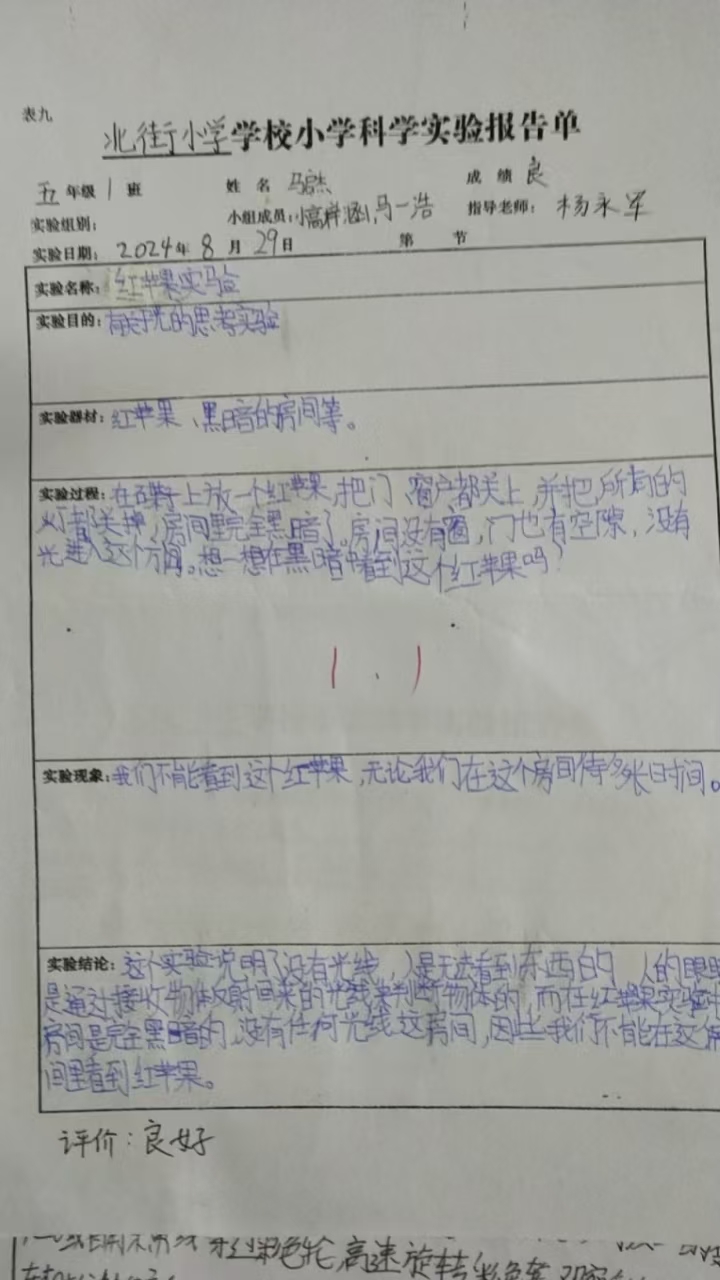 表九
北街小学学校小学科学实验报告单
五年级1班 姓名 马启杰 成绩 良
实验组别: 小组成员:高梓涵、马一浩 指导老师: 杨永军
实验日期: 2024年8月29日 第 节
实验名称: 红苹果实验
实验目的: 有关于光的思考实验
实验器材: 红苹果、黑暗的房间等。
实验过程: 在桌子上放一个红苹果,把门、窗户都关上,并把所有的
灯都关掉,房间里完全黑暗了。房间没有窗,门也有空隙,没有
光进入这个方间。想一想在黑暗中看到这个红苹果吗?
实验现象: 我们不能看到这个红苹果,无论我们在这个房间待多长时间。
实验结论: 这个实验说明了没有光线,人是无法看到东西的,人的眼睛
是通过接收物体反射回来的光线来判断物体的,而在红苹果实验中
房间是完全黑暗的,没有任何光线这房间,因此我们不能在这个房
间里看到红苹果。
评价:良好
彩色轮高速旋转